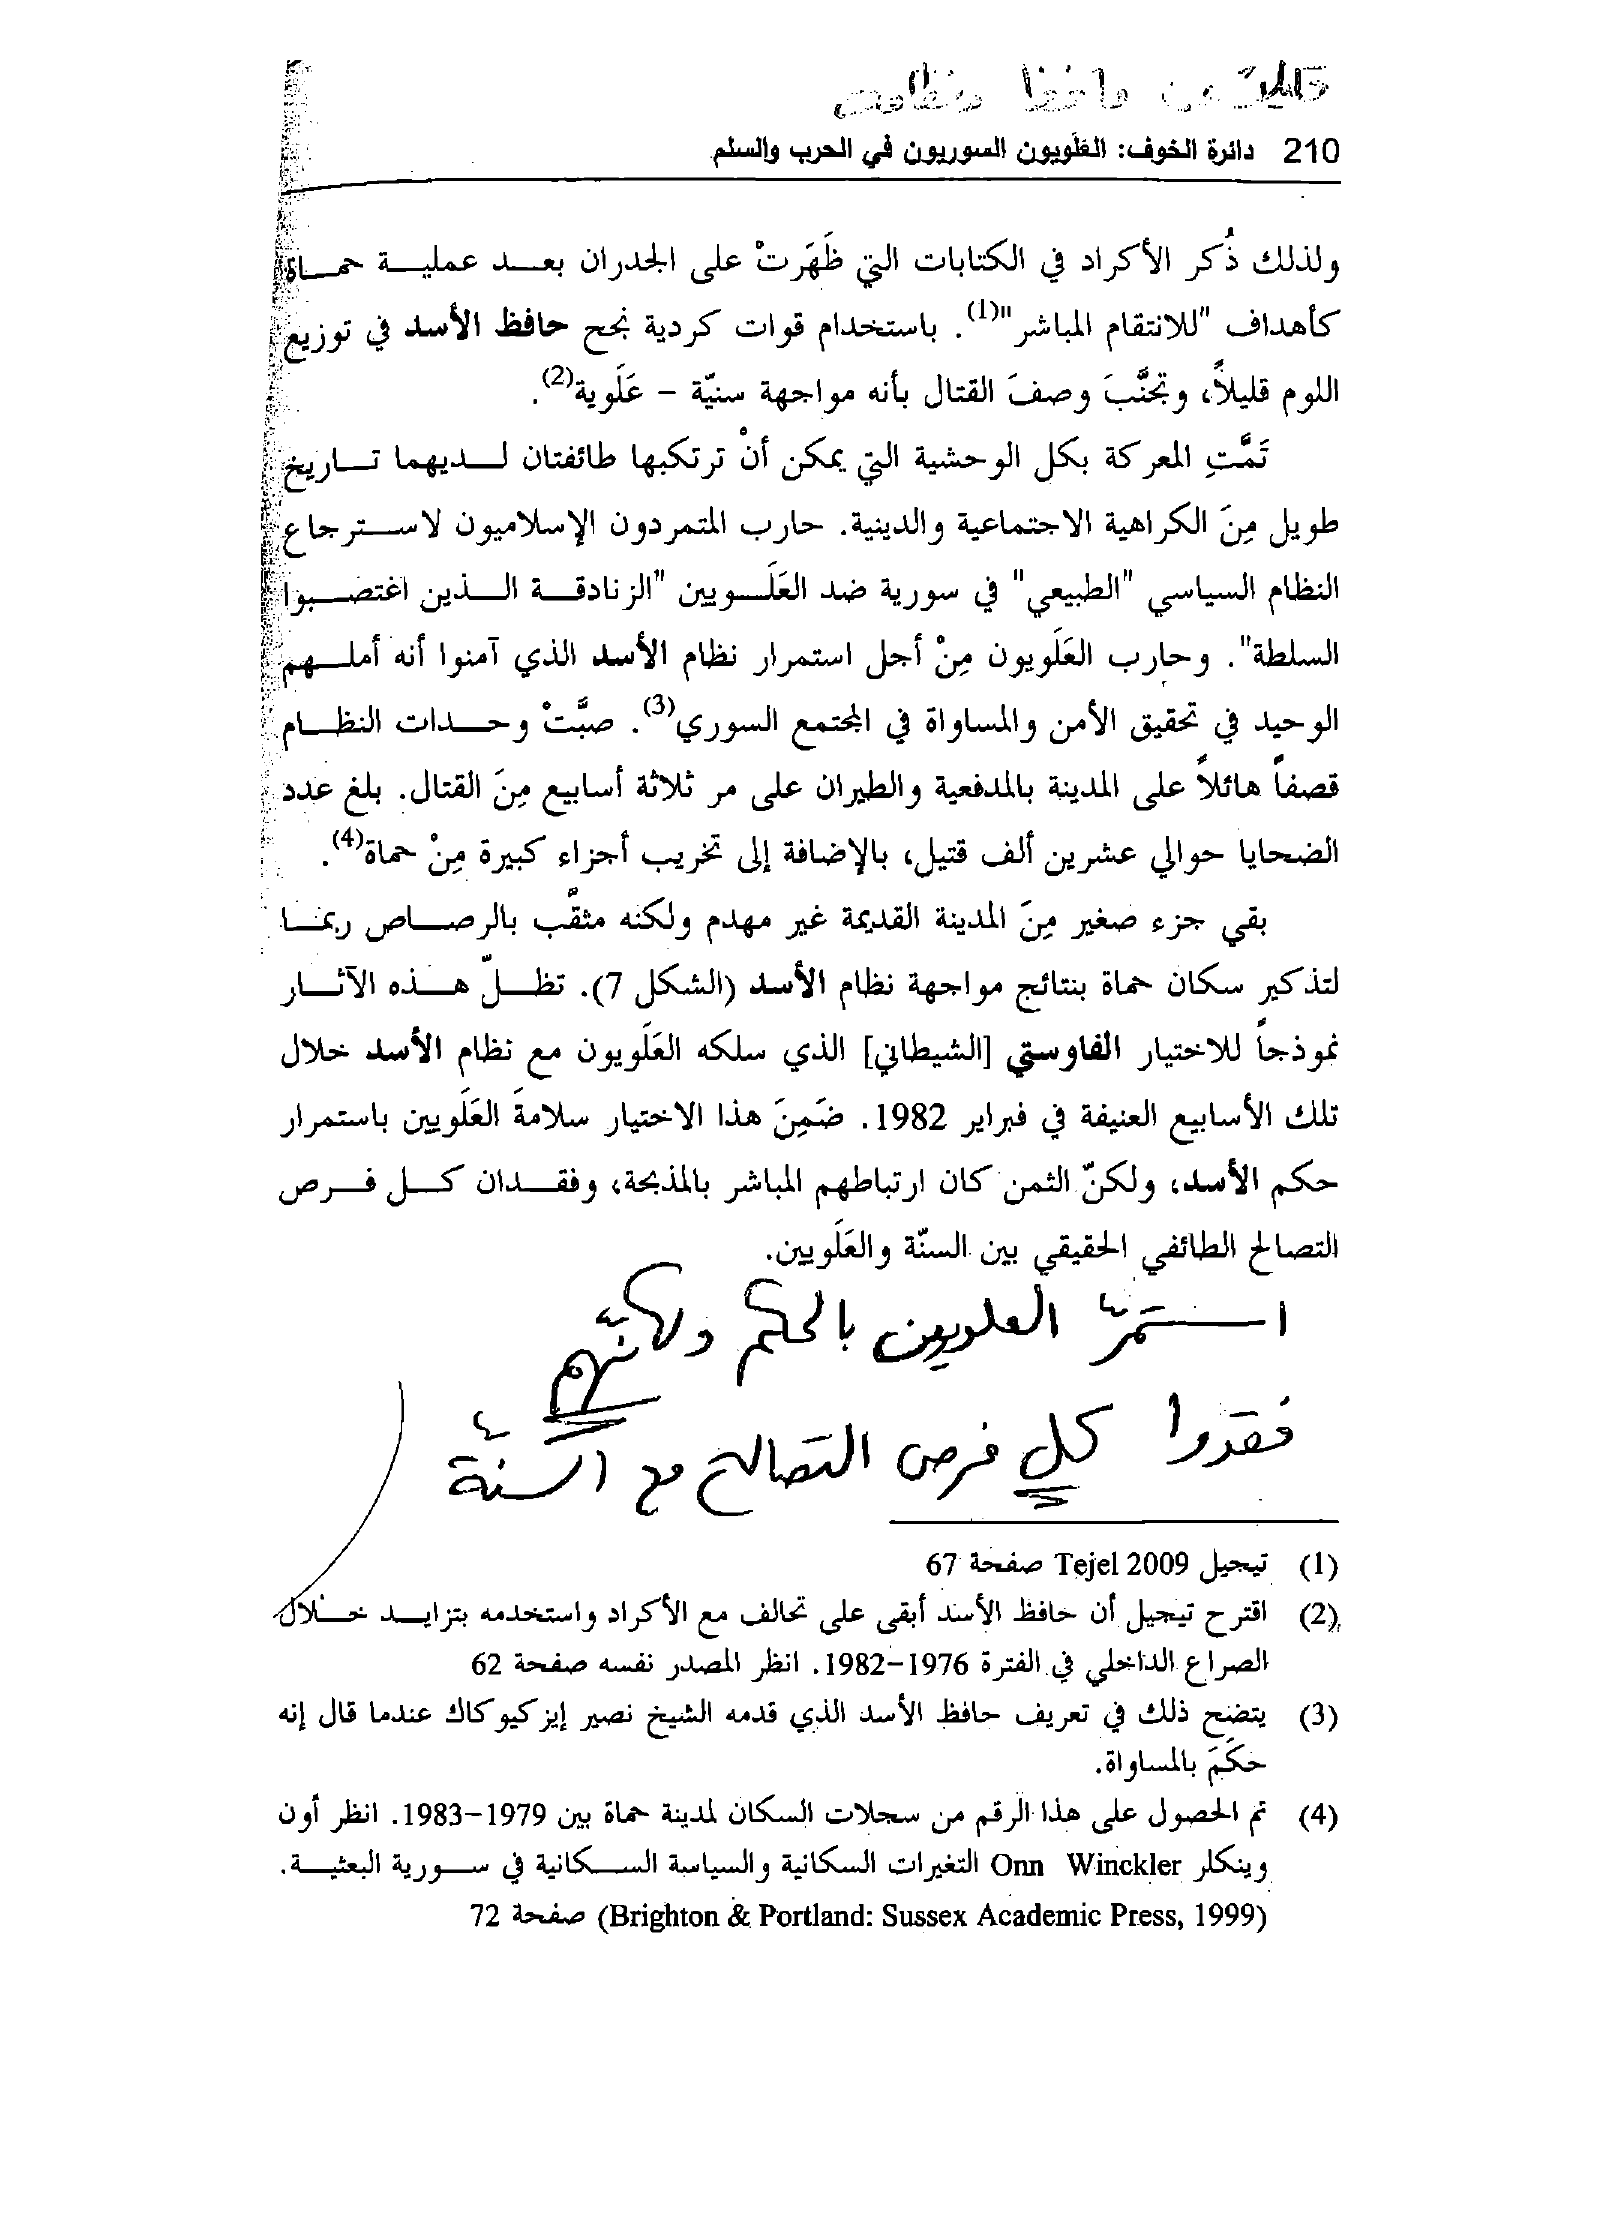 210 دائرة الخوف: العَلَويون السوريون في الحرب والسلم
ولذلك ذُكر الأكراد في الكتابات التي ظَهَرتْ على الجدران بعد عملية حماة
كأهداف "للانتقام المباشر"(1). باستخدام قوات كردية نجح حافظ الأسد في توزيع
اللوم قليلاً، وتجنَّبَ وصفَ القتال بأنه مواجهة سنيّة - عَلَوية(2).
تَمَّتِ المعركة بكل الوحشية التي يمكن أنْ ترتكبها طائفتان لديهما تاريخ
طويل مِنَ الكراهية الاجتماعية والدينية. حارب المتمردون الإسلاميون لاسترجاع
النظام السياسي "الطبيعي" في سورية ضد العَلَويين "الزنادقة الذين اغتصبوا
السلطة". وحارب العَلَويون مِنْ أجل استمرار نظام الأسد الذي آمنوا أنه أملهم
الوحيد في تحقيق الأمن والمساواة في المجتمع السوري(3). صبَّتْ وحدات النظام
قصفاً هائلاً على المدينة بالمدفعية والطيران على مر ثلاثة أسابيع مِنَ القتال. بلغ عدد
الضحايا حوالي عشرين ألف قتيل، بالإضافة إلى تخريب أجزاء كبيرة مِنْ حماة(4).
بقي جزء صغير مِنَ المدينة القديمة غير مهدم ولكنه مثقَّب بالرصاص ربما
لتذكير سكان حماة بنتائج مواجهة نظام الأسد (الشكل 7). تظلّ هذه الآثار
نموذجاً للاختيار الفاوستي [الشيطاني] الذي سلكه العَلَويون مع نظام الأسد خلال
تلك الأسابيع العنيفة في فبراير 1982. ضَمِنَ هذا الاختيار سلامةَ العَلَويين باستمرار
حكم الأسد، ولكنّ الثمن كان ارتباطهم المباشر بالمذبحة، وفقدان كل فرص
التصالح الطائفي الحقيقي بين السنّة والعَلَويين.
استمرّ العلويين بالحكم ولكنّهم
فقدوا كل فرص التصالح مع السنة
(1) تيجيل Tejel 2009 صفحة 67
(2) اقترح تيجيل أن حافظ الأسد أبقى على تحالف مع الأكراد واستخدمه بتزايد خلال
الصراع الداخلي في الفترة 1976-1982. انظر المصدر نفسه صفحة 62
(3) يتضح ذلك في تعريف حافظ الأسد الذي قدمه الشيخ نصير إيزكيوكاك عندما قال إنه
حكَمَ بالمساواة.
(4) تم الحصول على هذا الرقم من سجلات السكان لمدينة حماة بين 1979-1983. انظر أون
وينكلر Onn Winckler التغيرات السكانية والسياسة السكانية في سورية البعثية.
(Brighton & Portland: Sussex Academic Press, 1999) صفحة 72